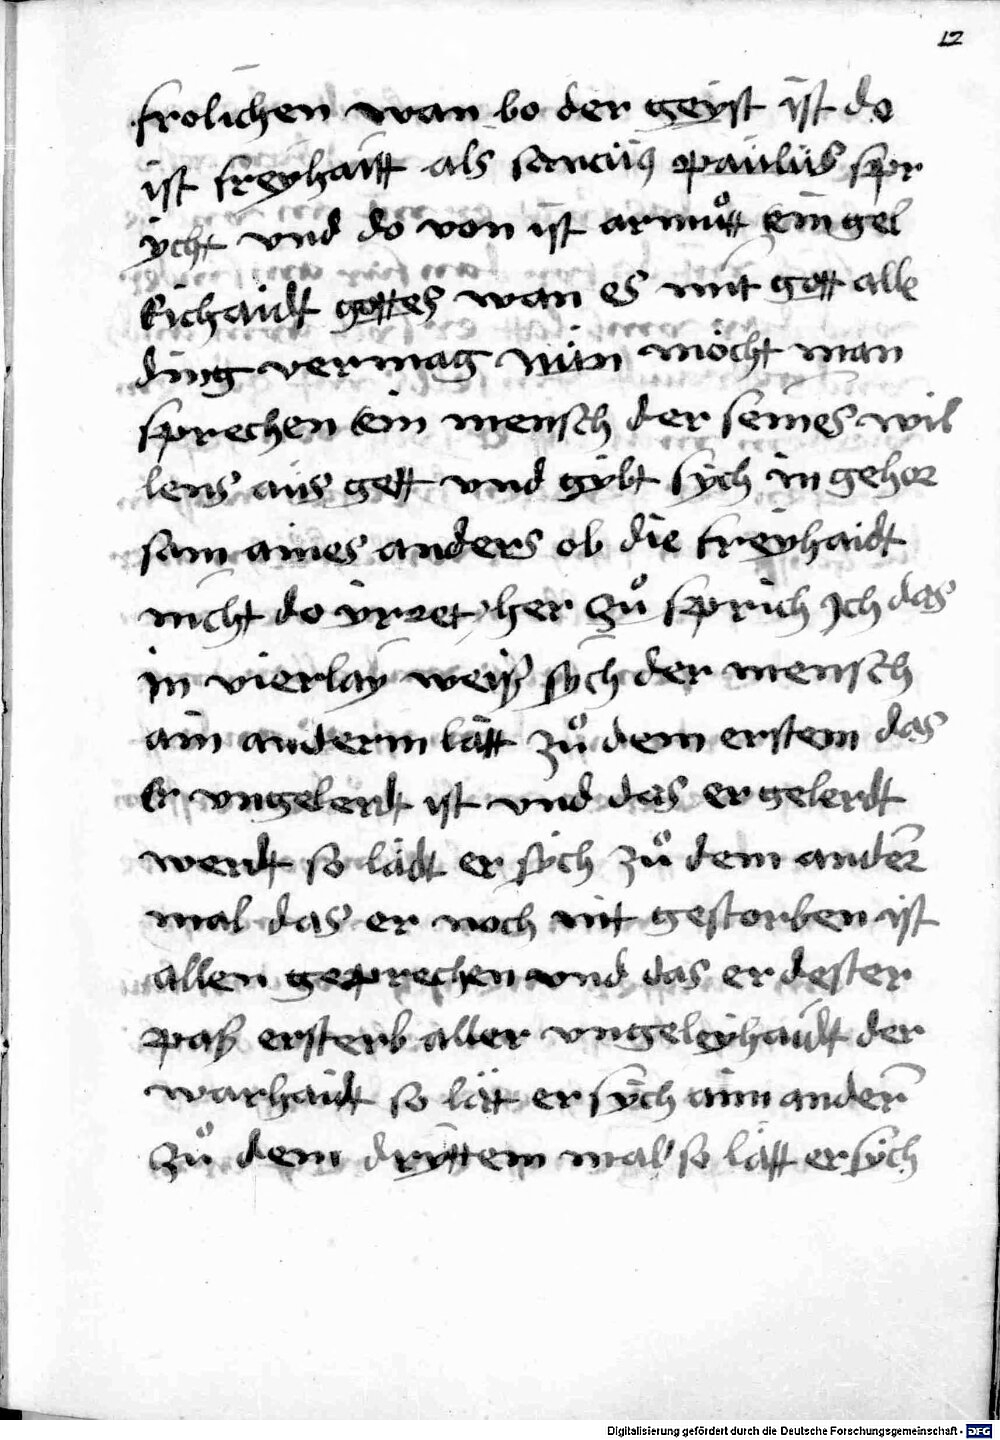 12
frolichen wan bo der geyst ist do
ist freyhaitt als sanctus paulus spr
ycht vnd do von ist armůtt ein gel
kichaidt gottes wan es mit gott alle
ding vermag nun möcht man
sprechen ein mensch der seines wil
lens aus gett vnd gybt sych in gehor
sam aines anders ob die freyhaidt
nicht do irret her zů sprich Ich das
in vierlay weiß sych der mensch
ain anderm lätt zů dem erstem das
Er vngelerdt ist vnd das er gelerdt
werdt so lädt er sych zů dem ander
mal das er noch nit gestorben ist
allen geprechen vnd das er dester
paß ersterb aller vngeleyhaidt der
warhaidt so lät er sych aim ander
zů dem dryttem mal so lätt er sych
Digitalisierung gefördert durch die Deutsche Forschungsgemeinschaft - DFG